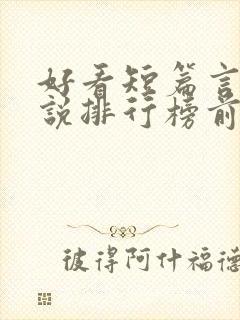 好看短篇言
說排行榜前
彼得阿什福德